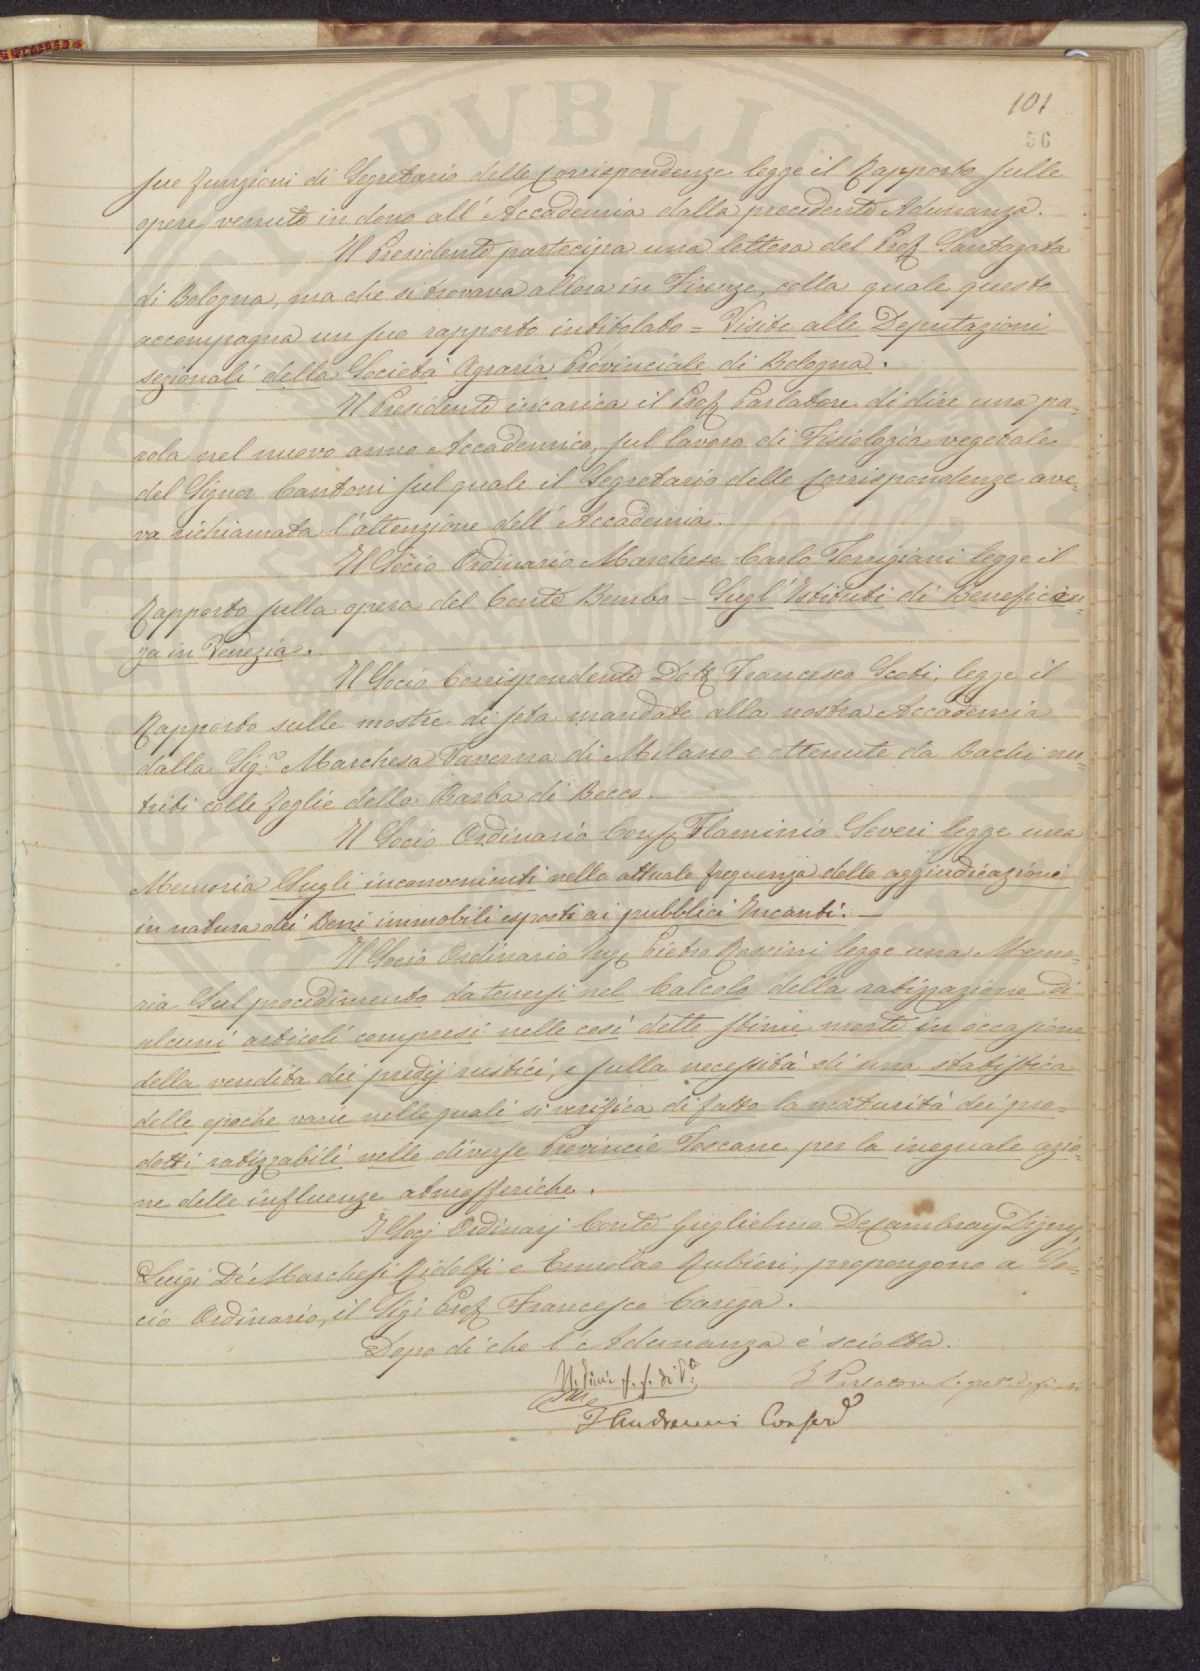 101
56
sue funzioni di Segretario delle Corrispondenze legge il Rapporto sulle
opere venute in dono all'Accademia dalla precedente Adunanza.
Il Presidente partecipa una lettera del Prof. Santagata
di Bologna, ma che si trovava allora in Firenze, colla quale questo
accompagna un suo rapporto intitolato = Visite alle Deputazioni
sezionali della Società Agraria Provinciale di Bologna.
Il Presidente incarica il Prof. Parlatore di dire una pa-
rola nel nuovo anno Accademico, sul lavoro di Fisiologia vegetale
del Signor Cantoni sul quale il Segretario delle Corrispondenze ave-
va richiamata l'attenzione dell'Accademia.
Il Socio Ordinario Marchese Carlo Torrigiani legge il
Rapporto sulla opera del Conte Bembo - Sugl'Istituti di Beneficien-
za in Venezia.
Il Socio Corrispondente Dott. Francesco Scoti, legge il
Rapporto sulle mostre di seta mandate alla nostra Accademia
dalla Sig.ra Marchesa Taverna di Milano e ottenute da Bachi nu-
triti colle foglie della Barba di Becco.
Il Socio Ordinario Cons. Flaminio Severi legge una
Memoria Sugli inconvenienti nella attuale frequenza delle aggiudicazioni
in natura dei Beni immobili esposti ai pubblici Incanti. —
Il Socio Ordinario Ing. Pietro Rossini legge una Memo-
ria Sul procedimento da tenersi nel Calcolo della ratizzazione di
alcuni articoli compresi nelle così dette stime morte in occasione
della vendita dei predij rustici, e sulla necessità di una statistica
delle epoche varie nelle quali si verifica di fatto la maturità dei pro-
dotti ratizzabili nelle diverse Provincie Toscane per la ineguale azio-
ne delle influenze atmosferiche.
I Socj Ordinarj Conte Guglielmo De Cambray Digny,
Luigi De' Marchesi Ridolfi e Ermolao Rubieri, propongono a So-
cio Ordinario, il Sig. Prof. Francesco Carega.
Dopo di che l'Adunanza è sciolta.
f. f. di